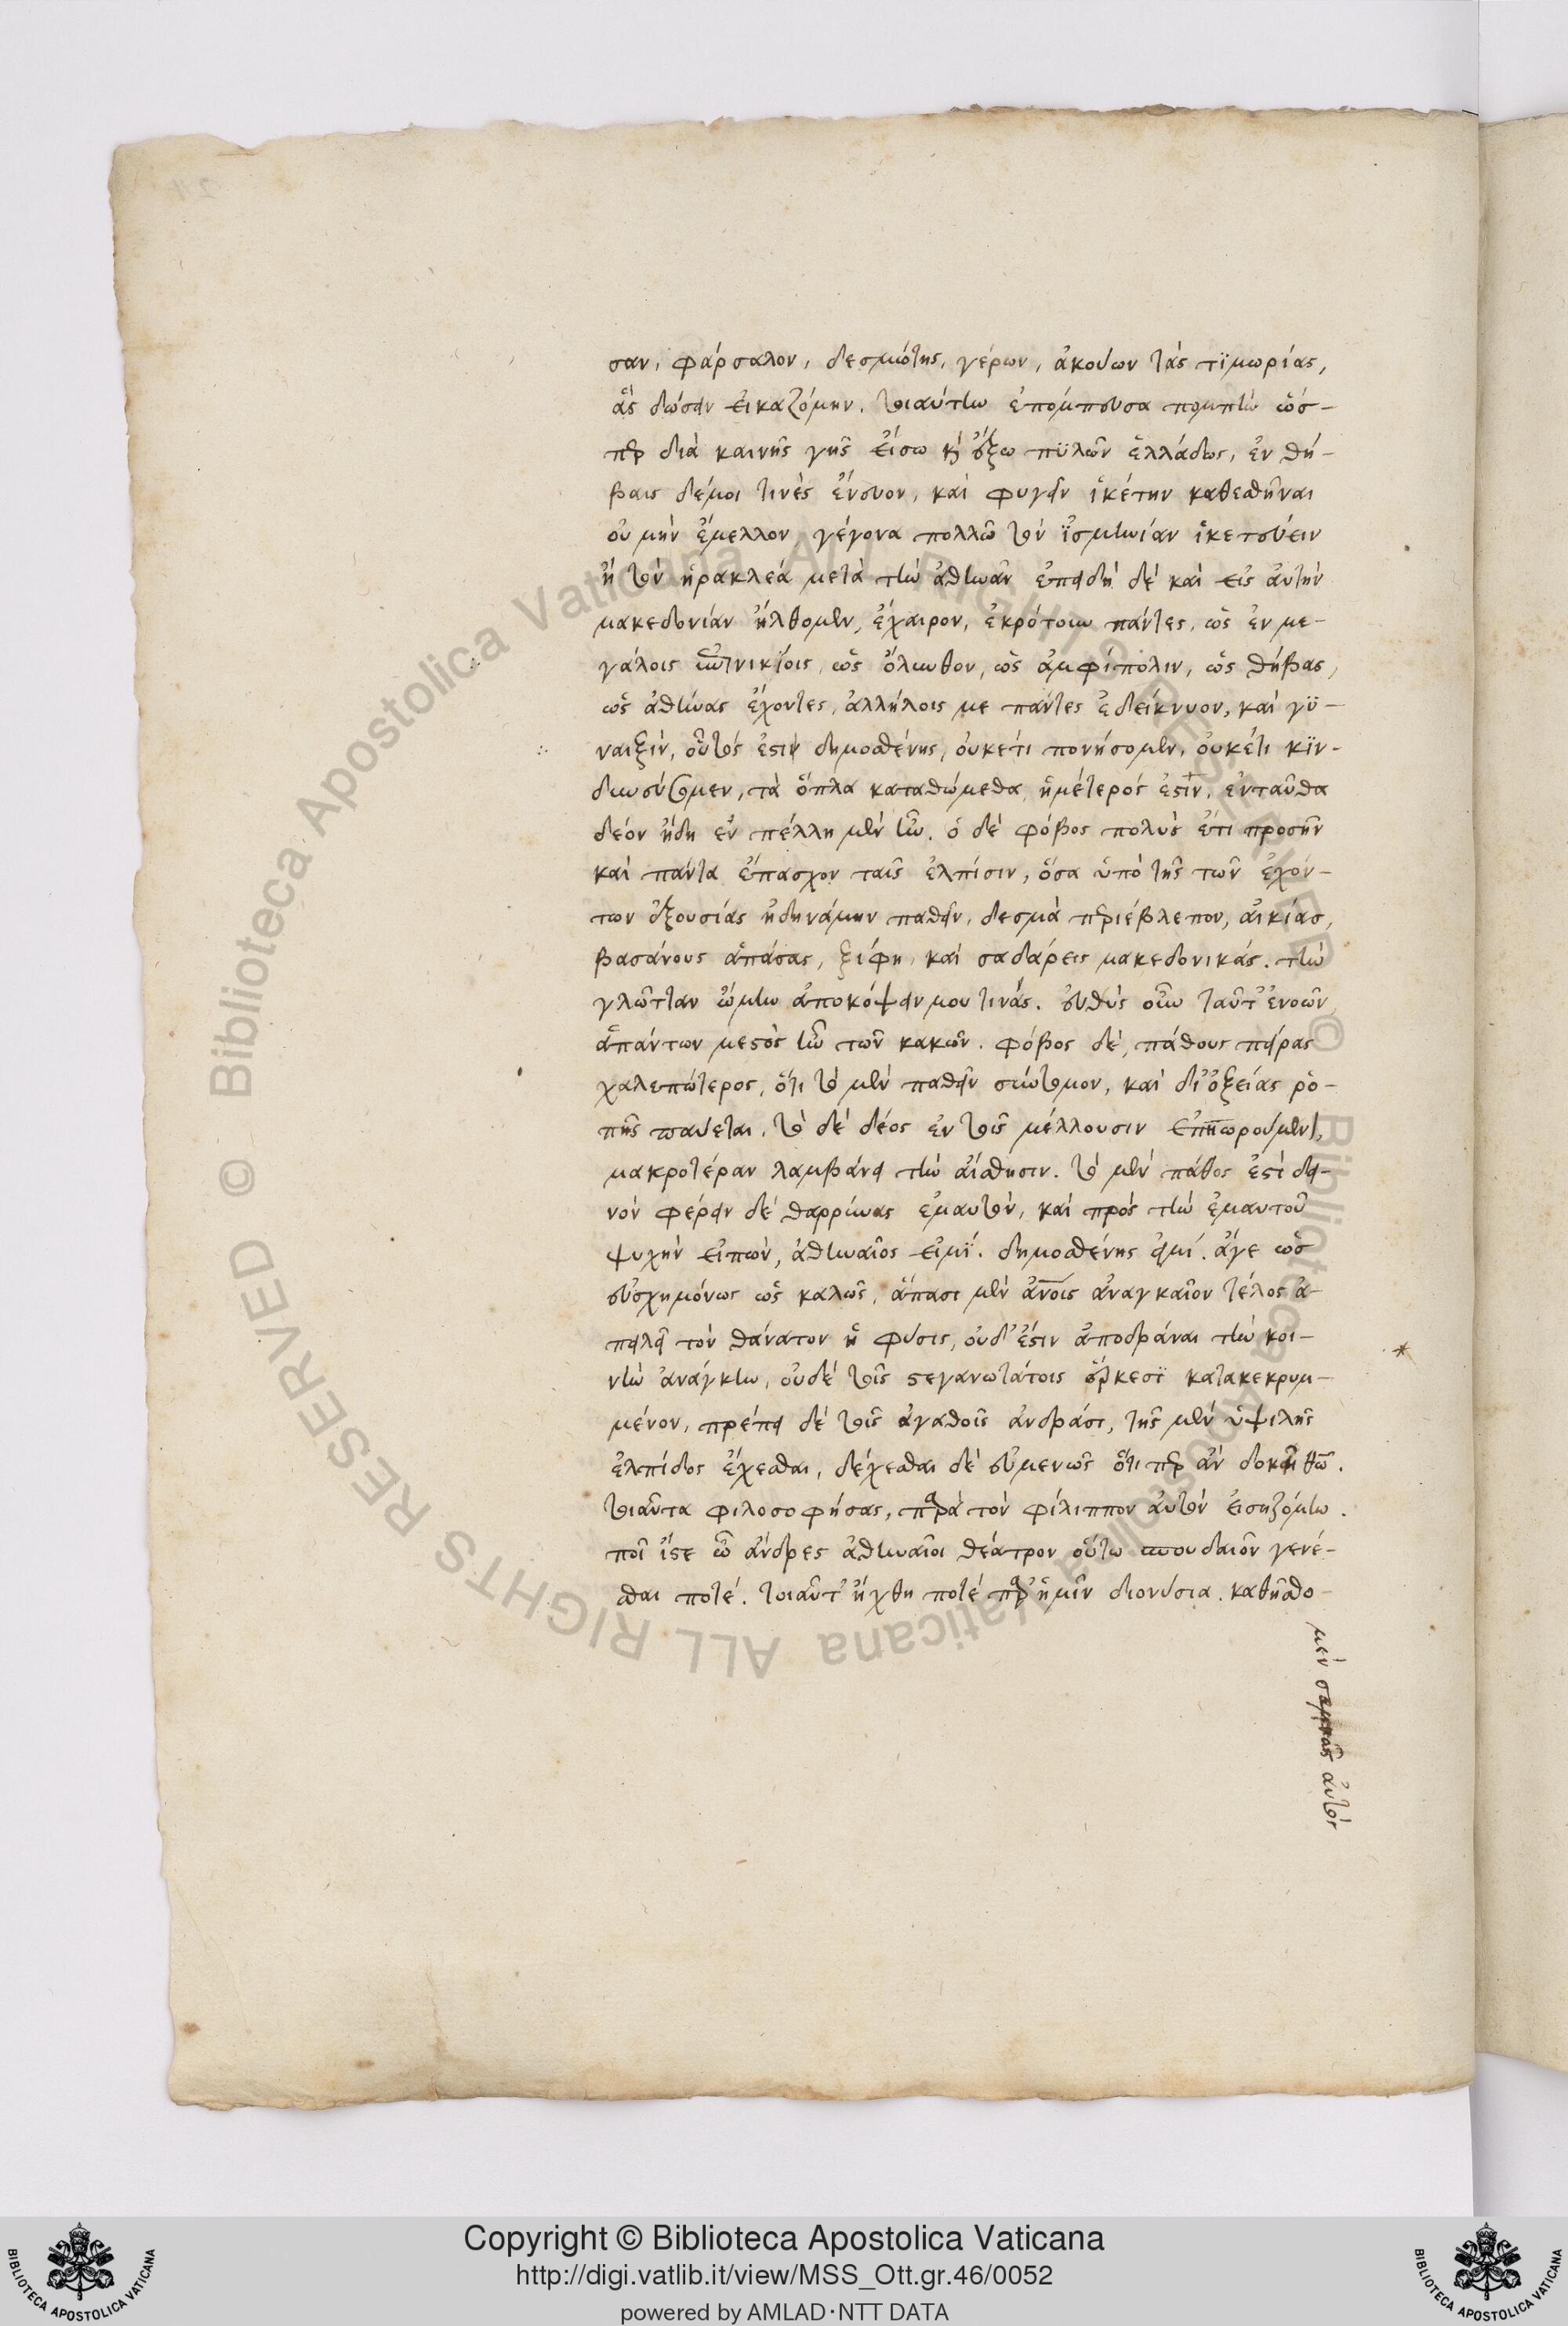 σαν, φάρσαλον, δεσμώτης, γέρων, ἀκούων τὰς τϊμωρίας,
ἃς δώσειν εἰκαζόμην. τοιαύτην ἐπόμπευσα πομπὴν ὥσ-
περ διὰ καινῆς γῆς εἴσω καὶ ἔξω πϋλῶν ἑλλάδος, ἐν θή-
βαις δέμοι τινὲς ἔνευον, καὶ φυγεῖν ἱκέτην καθεσθῆναι
οὐ μὴν ἔμελλον γέγονα πολλῶ τὸν ἰσμηνίαν ἱκετεύειν
ἢ τὸν ἡρακλέα μετὰ τὴν ἀθηνᾶν ἐπειδὴ δὲ καὶ εἰς ἀυτὴν
μακεδονίαν ἤλθομεν, ἔχαιρον, ἐκρότουν πάντες, ὡς ἐν με-
γάλοις ἐπινικΐοις, ὡς ὄλυνθον, ὡς ἀμφίπολιν, ὡς θήβας,
ὡς ἀθήνας ἔχοντες, ἀλλήλοις με πάντες ἐδείκνυον, καὶ γϋ-
ναιξὶν, οὗτός ἐστιν δημοσθένης, ὀυκέτι πονήσομεν, ὀυκέτι κϊν-
δυνεύσομεν, τὰ ὅπλα καταθώμεθα, ἡμέτερός ἐστιν, ἐνταῦθα
δέον ἤδη ἐν πέλλη μὲν ἦν. ὁ δὲ φόβος πολὺς ἔτι προσῆν
καὶ πάντα ἔπασχον ταῖς ἐλπίσιν, ὅσα ὑπὸ τῆς τῶν ἐχόν-
των ἐξουσίας ἠδηνάμην παθεῖν, δεσμὰ περιέβλεπον, αἰκίας,
βασάνους ἁπάσας, ξίφη καὶ σαδάρεις μακεδονικάς. τὴν
γλῶτταν ὤμην ἀποκόψειν μου τινάς. εὐθὺς οὖν ταῦτ' ἐνοῶν
ἁπάντων μεστὸς ἦν τῶν κακῶν. φόβος δὲ, πάθους πείρας
χαλεπώτερος, ὅτι τὸ μὲν παθεῖν σύντομον, καὶ δι' ὀξείας ῥο-
πῆς παύεται. τὸ δὲ δέος ἐν τοῖς μέλλουσιν ἐπηωρούμεν,
μακροτέραν λαμβάνει τὴν αἴσθησιν. τὸ μὲν πάθος ἐστὶ δει-
νὸν φέρειν δὲ θαρρήνας ἐμαυτὸν, καὶ πρὸς τὴν ἐμαυτοῦ
ψυχὴν εἰπὼν, ἀθηναῖος εἰμΐ. δημοσθένης εἰμί. ἄγε ὡς
εὐσχημόνως ὡς καλῶς, ἅπασι μὲν ἀνοις ἀναγκαῖον τέλος ἀ-
πειλεῖ τὸν θάνατον ἡ φύσις, οὐδ' ἔστιν ἀποδρᾶναι τὴν κοι-
νὴν ἀνάγκην, οὐδὲ τοῖς στεγανωτάτοις ἕρκεσϊ κατακεκρυμ-
μένον, πρέπει δὲ τοῖς ἀγαθοῖς ἀνδράσι, τῆς μὲν ὑψιλῆς
ἐλπίδος ἔχεσθαι, δέχεσθαι δὲ εὐμενῶς ὅτιπερ ἂν δοκῆ θῶ.
τοιαῦτα φιλοσοφήσας, παρὰ τὸν φίλιππον ἀυτὸν ἐισηζόμην.
ποῖ ἴστε ὦ ἄνδρες ἀθηναῖοι θέατρον οὕτω σπουδαῖον γενέ-
σθαι ποτέ. τοιαῦτ' ἤχθη ποτὲ παρ' ἡμῖν διονύσια. καθῆσθο
μεν ἀυτὸς